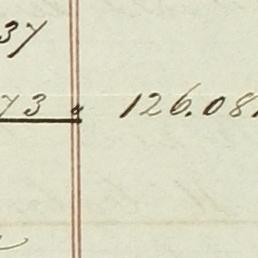 37
73 " 126.08